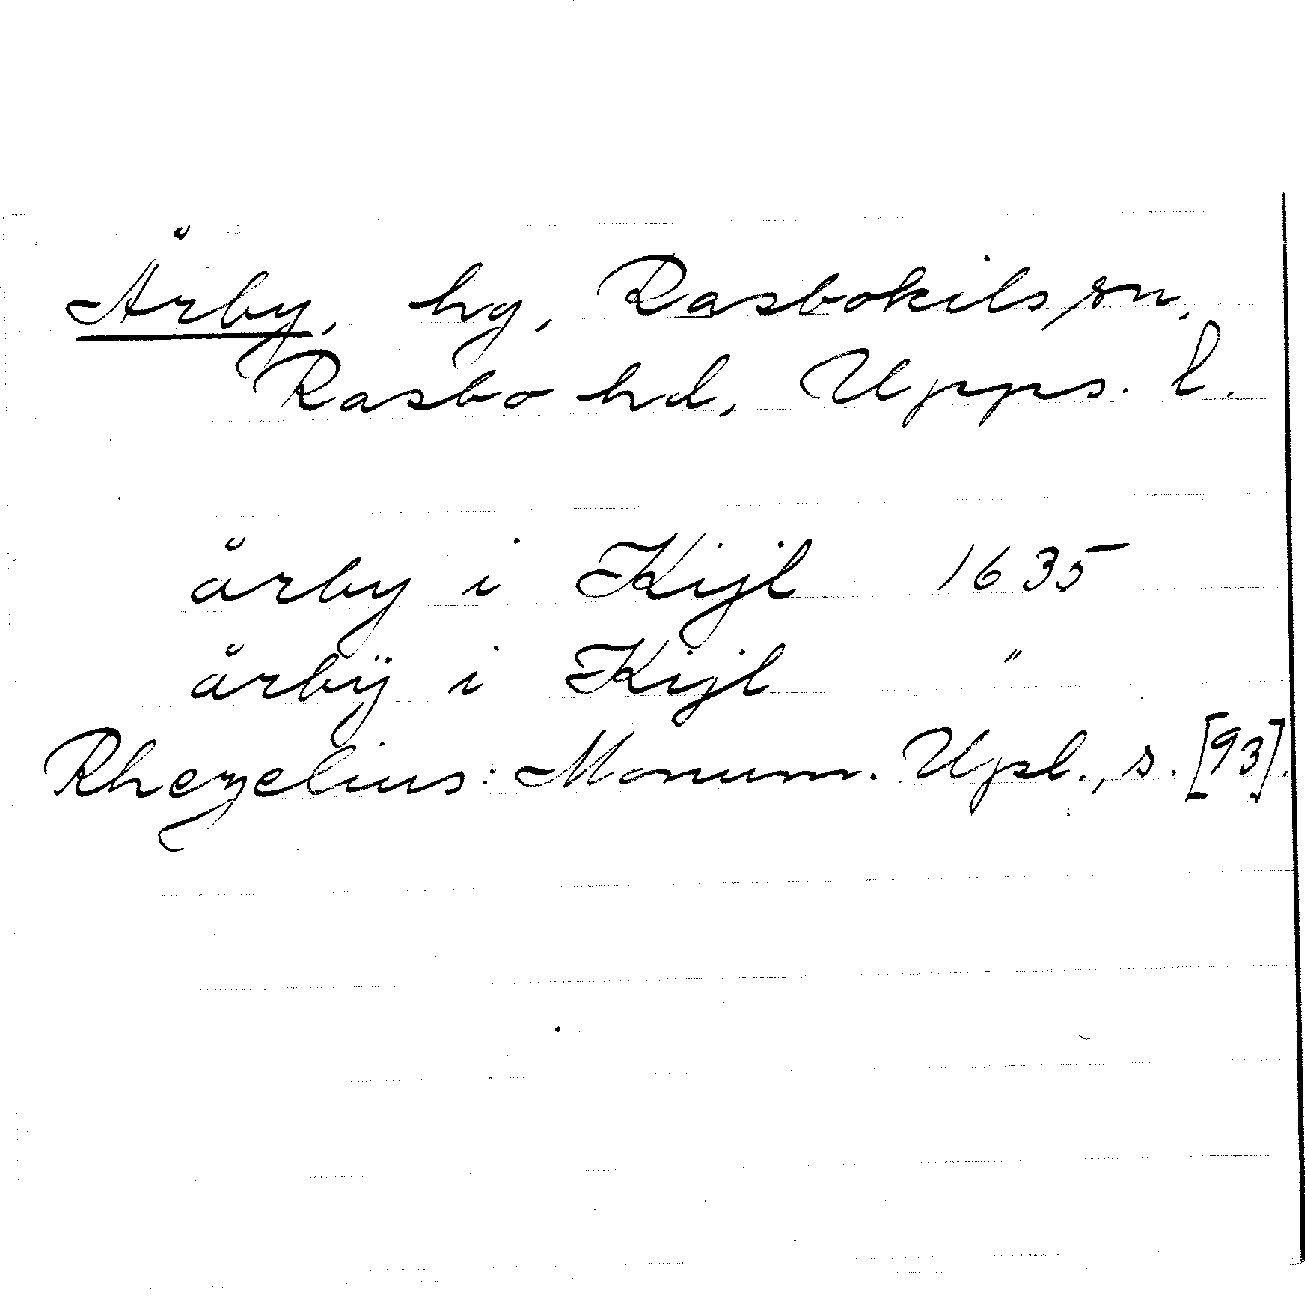 Årby, hg, Rasbokils sn,
Rasbo hd, Upps. l.
årby i Kijl 1635
årbÿ i Kijl "
Rhezelius: Monum. Upl., s. [93].